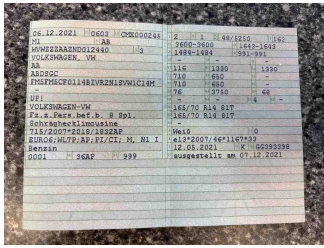 06.12.2021 0603 CMX000245
M1
WVWZZZAAZND012440 3
VOLKSWAGEN, VW
AA
ABDSGC
FM5FM5CF0114BIVR2N1SVW1C14M
-
UP!
VOLKSWAGEN-VW
Fz.z.Pers.bef.b. 8 Spl.
Schräghecklimousine
715/2007*2018/1832AP
EURO6;WLTP;AP;PI/CI; M, N1 I
Benzin
0001 36AP 999
2 1 48/5250 162
3600-3600 1643-1643
1484-1484 991-991
-
116 1330 1330
710 650 -
710 650 -
76 3750 68
- - 4 -
165/70 R14 81T
165/70 R14 81T
-
Weiß 0
e13*2007/46*1167*33
12.05.2021 K GG393398
ausgestellt am 07.12.2021